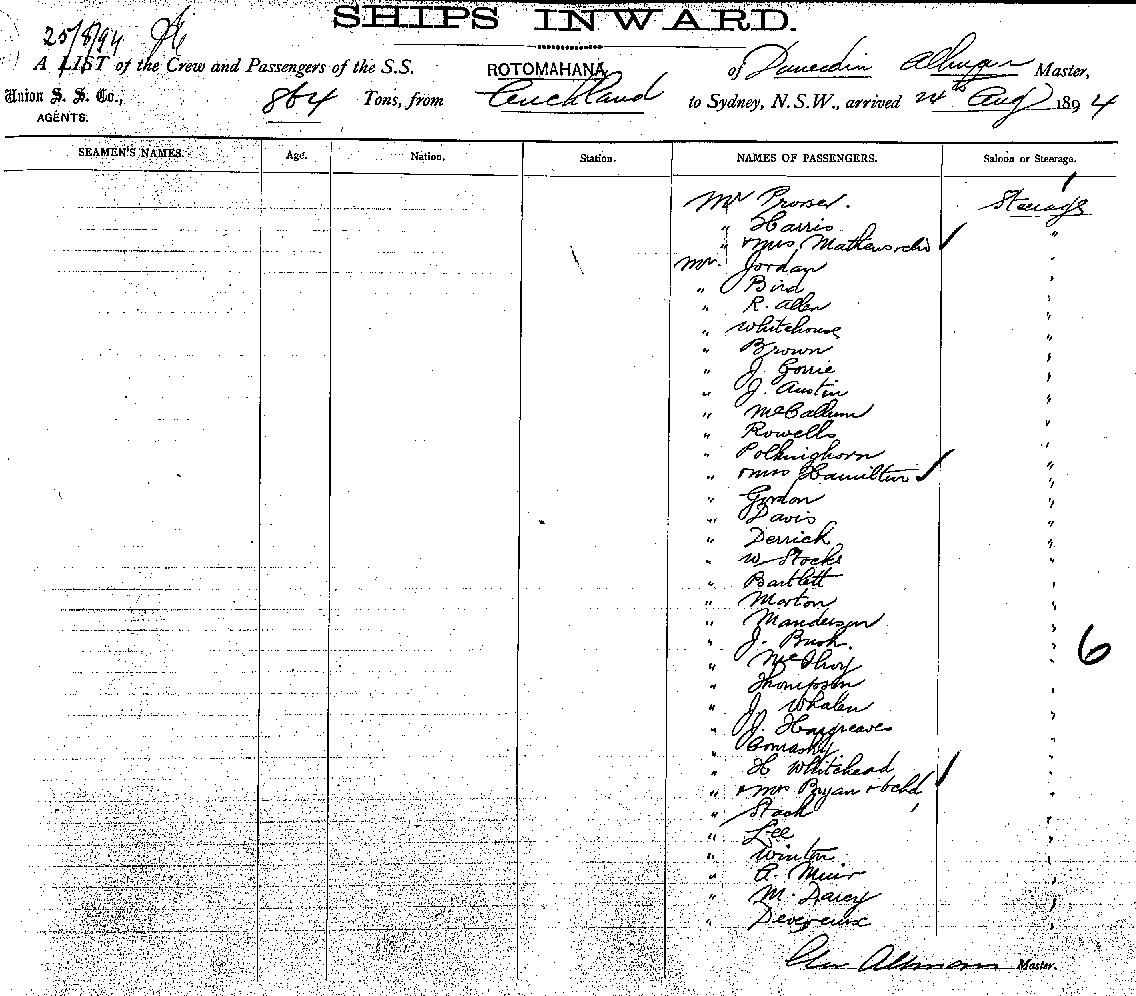 SHIPS INWARD.
25/8/94
A LIST of the Crew and Passengers of the S.S. ROTOMAHANA of Dunedin Master,
Union S. S. Co., 864 Tons, from Auckland to Sydney, N.S.W., arrived 24th Aug 1894
AGENTS.
SEAMEN'S NAMES. Age. Nation. Station. NAMES OF PASSENGERS. Saloon or Steerage.
Mr Prosser. Steerage
" Harris "
" + Mrs Mathews + chd "
Mr. Jordan "
" Bird "
" R. Allen "
" Whitehouse "
" Brown "
" J. Gorrie "
" J. Austin "
" McCallum "
" Rowells "
" Polkinghorn "
" + Mrs Hamilton "
" Gordon "
" Davis "
" Derrick "
" W Stocks "
" Bartlett "
" Morton "
" Manderson "
" J. Bush. " 6
" McIlroy "
" Thompson "
" J. Whalen "
" J. Hargreaves "
" "
" H Whitehead "
" + Mrs Bryan + chd "
" Stack "
" Lee "
" Winter "
" A. Muir "
" M. Darcy "
" Devereux "
Master.